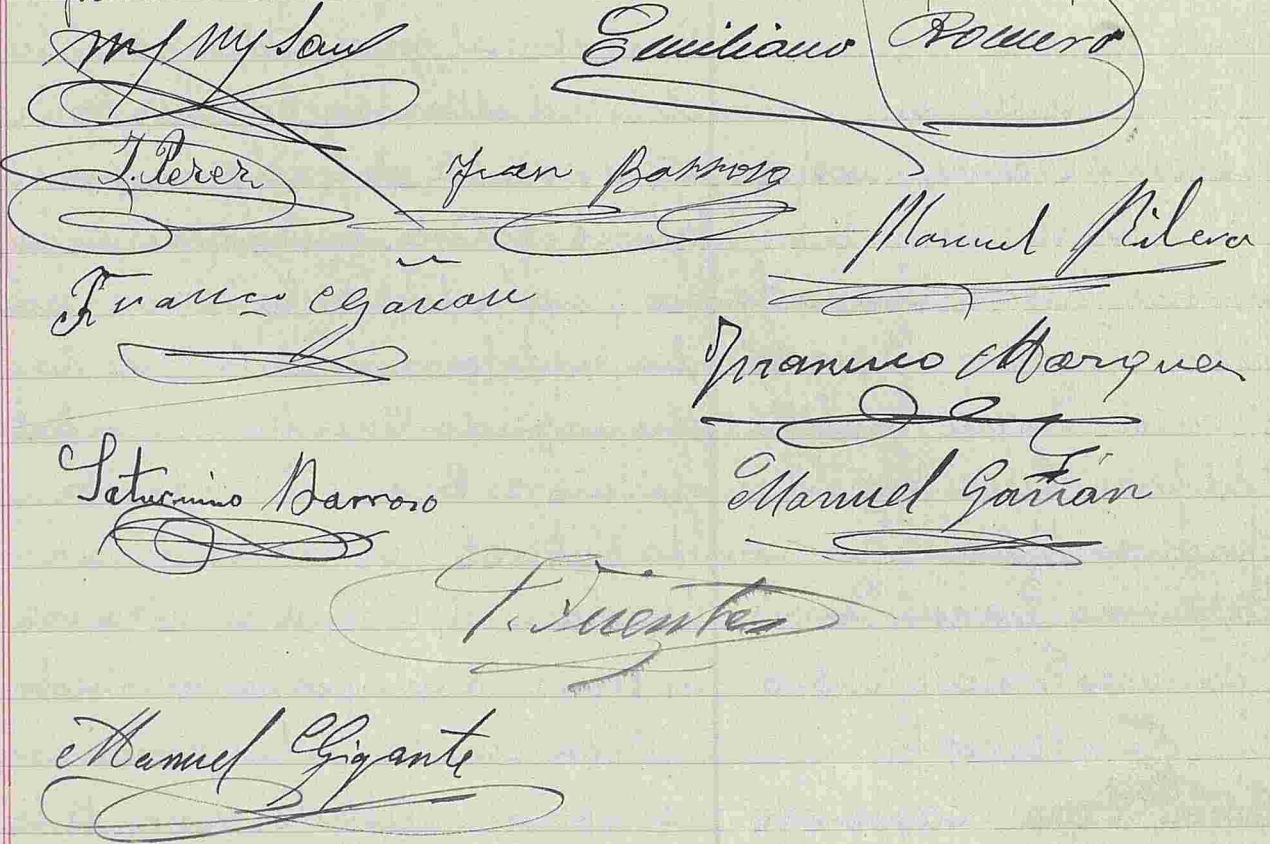 Emiliano Romero
J. Perez
Juan Barroso
Manuel Rilero
Franco Gañan
Francisco Marquez
Saturnino Barroso
Manuel Gañán
Fuentes
Manuel Gigante